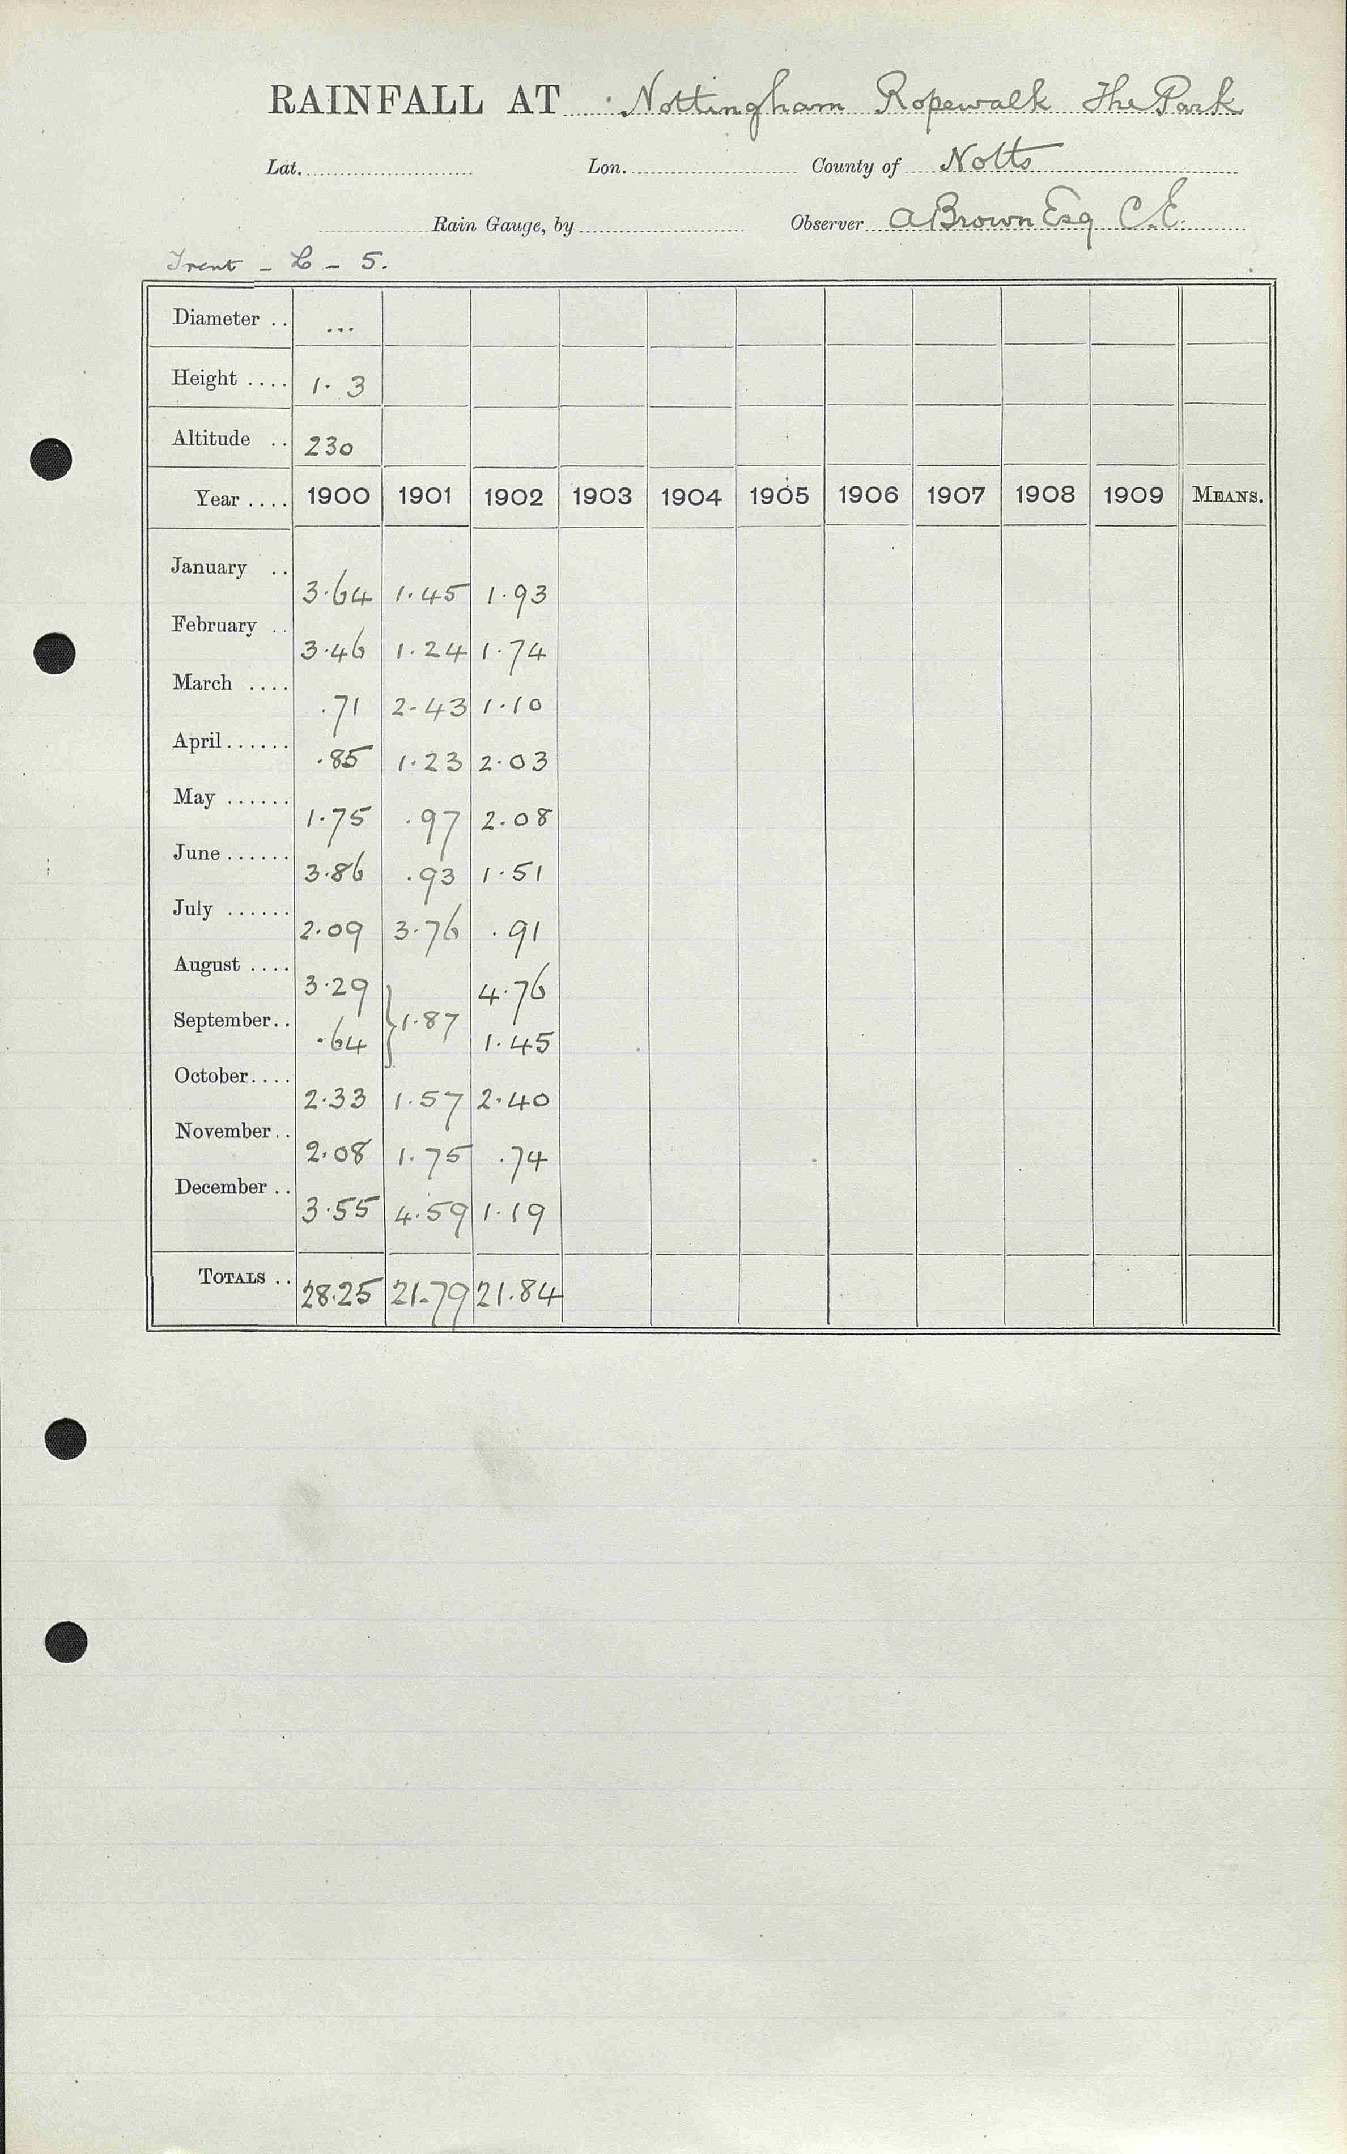 RAINFALL AT Nottingham Ropewalk The Park
Lat. Lon. County of Notts
Rain Gauge, by Observer A Brown Esq C.E.
Trent - L - 5.
Diameter .. ...
Height .... 1. 3
Altitude .. 230
Year .... 1900 1901 1902 1903 1904 1905 1906 1907 1908 1909 MEANS.
January .. 3.64 1.45 1.93
February .. 3.46 1.24 1.74
March .... .71 2.43 1.10
April...... .85 1.23 2.03
May ...... 1.75 .97 2.08
June...... 3.86 .93 1.51
July ...... 2.09 3.76 .91
August .... 3.29 } 4.76
September.. .64 } 1.87 1.45
October.... 2.33 1.57 2.40
November.. 2.08 1.75 .74
December .. 3.55 4.59 1.19
TOTALS .. 28.25 21.79 21.84